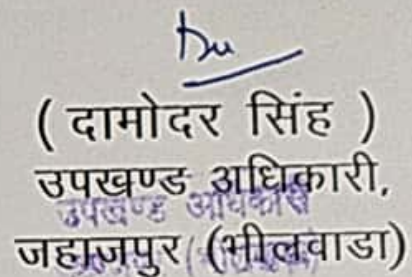 ( दामोदर सिंह )
उपखण्ड अधिकारी,
उपखण्ड अधिकारी
जहाजपुर (भीलवाडा)